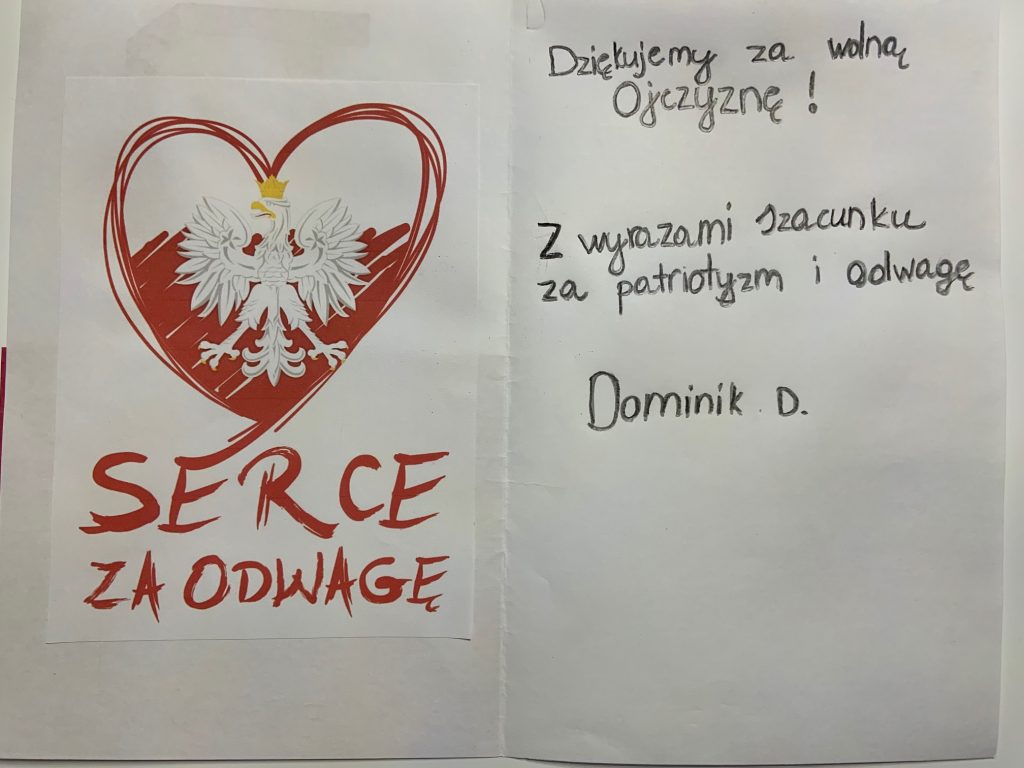 SERCE
ZA ODWAGĘ
Dziękujemy za wolną
Ojczyznę !
Z wyrazami szacunku
za patriotyzm i odwagę
Dominik D.